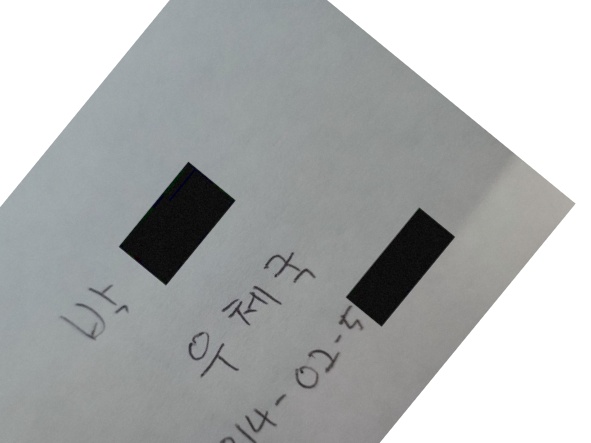 박
우체국
014-02-5